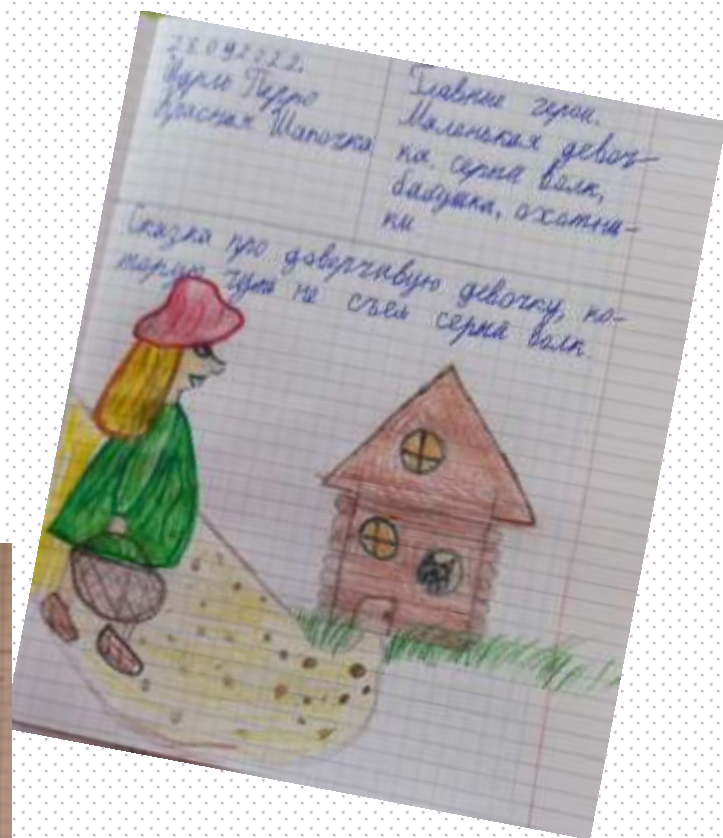 28.092022.
Шарль Перро
Красная Шапочка
Главные герои.
Маленькая девоч-
ка, серый волк,
бабушка, охотни-
ки
Сказка про доверчивую девочку, ко-
торую чуть не съел серый волк.